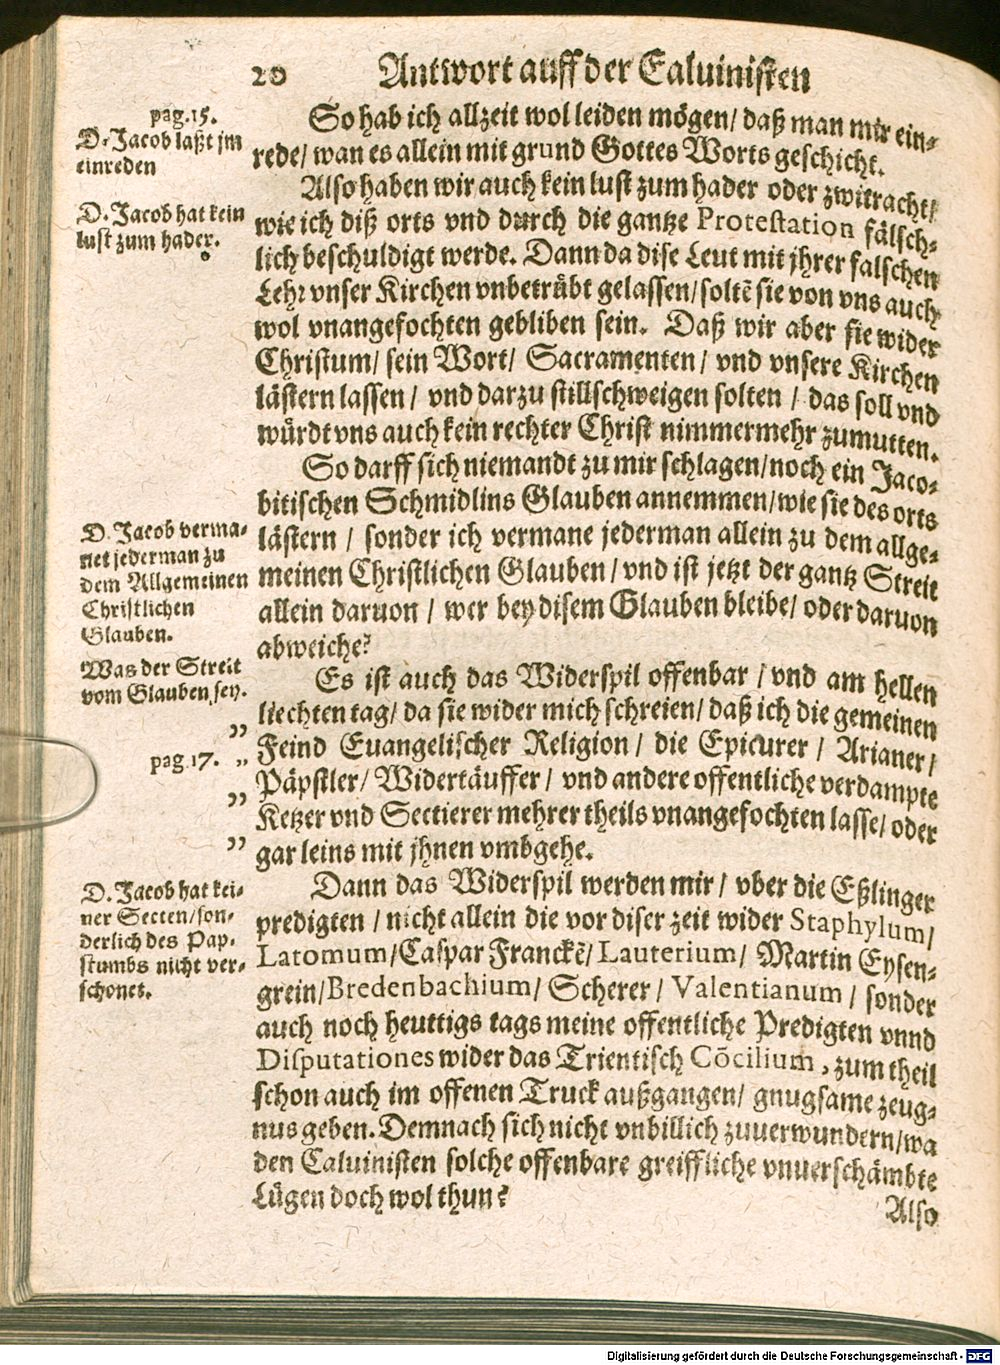 20 Antwort auff der Caluinisten
pag.15.
D. Jacob laßt jm
einreden
So hab ich allzeit wol leiden mögen/ daß man mir ein-
rede/ wan es allein mit grund Gottes Worts geschicht.
Also haben wir auch kein lust zum hader oder zwitracht/
D. Jacob hat kein
lust zum hader.
wie ich diß orts vnd durch die gantze Protestation fälsch-
lich beschuldigt werde. Dann da dise Leut mit jhrer falschen
Lehr vnser Kirchen vnbetrübt gelassen/ soltē sie von vns auch
wol vnangefochten gebliben sein. Daß wir aber sie wider
Christum/ sein Wort/ Sacramenten/ vnd vnsere Kirchen
lästern lassen/ vnd darzu stillschweigen solten/ das soll vnd
würdt vns auch kein rechter Christ nimmermehr zumutten.
So darff sich niemandt zu mir schlagen/ noch ein Jaco-
bitischen Schmidlins Glauben annemmen/ wie sie des orts
D. Jacob verma-
net jederman zu
dem Allgemeinen
Christlichen
Glauben.
lästern/ sonder ich vermane jederman allein zu dem allge-
meinen Christlichen Glauben/ vnd ist jetzt der gantz Streit
allein daruon/ wer bey disem Glauben bleibe/ oder daruon
abweiche?
Was der Streit
vom Glauben sey.
Es ist auch das Widerspil offenbar/ vnd am hellen
liechten tag/ da sie wider mich schreien/ daß ich die gemeinen
pag.17.
„ Feind Euangelischer Religion/ die Epicurer/ Arianer/
„ Päpstler/ Widertäuffer/ vnd andere offentliche verdampte
„ Ketzer vnd Sectierer mehrer theils vnangefochten lasse/ oder
„ gar leins mit jhnen vmbgehe.
D. Jacob hat kei-
ner Secten/ son-
derlich des Pap-
stumbs nicht ver-
schonet.
Dann das Widerspil werden mir/ vber die Eßlinger
predigten/ nicht allein die vor diser zeit wider Staphylum/
Latomum/ Caspar Franckē/ Lauterium/ Martin Eysen-
grein/ Bredenbachium/ Scherer/ Valentianum/ sonder
auch noch heuttigs tags meine offentliche Predigten vnnd
Disputationes wider das Trientisch Cōcilium, zum theil
schon auch im offenen Truck außgangen/ gnugsame zeug-
nus geben. Demnach sich nicht vnbillich zuuerwundern/ wa
den Caluinisten solche offenbare greiffliche vnuerschämbte
Lügen doch wol thun?
Also
Digitalisierung gefördert durch die Deutsche Forschungsgemeinschaft - DFG